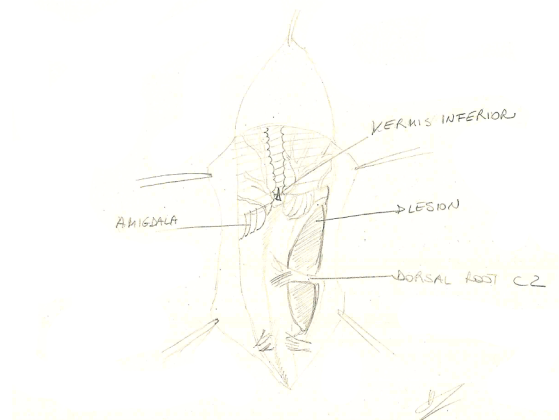 VERMIS INFERIOR
AMIGDALA
LESION
DORSAL ROOT C2